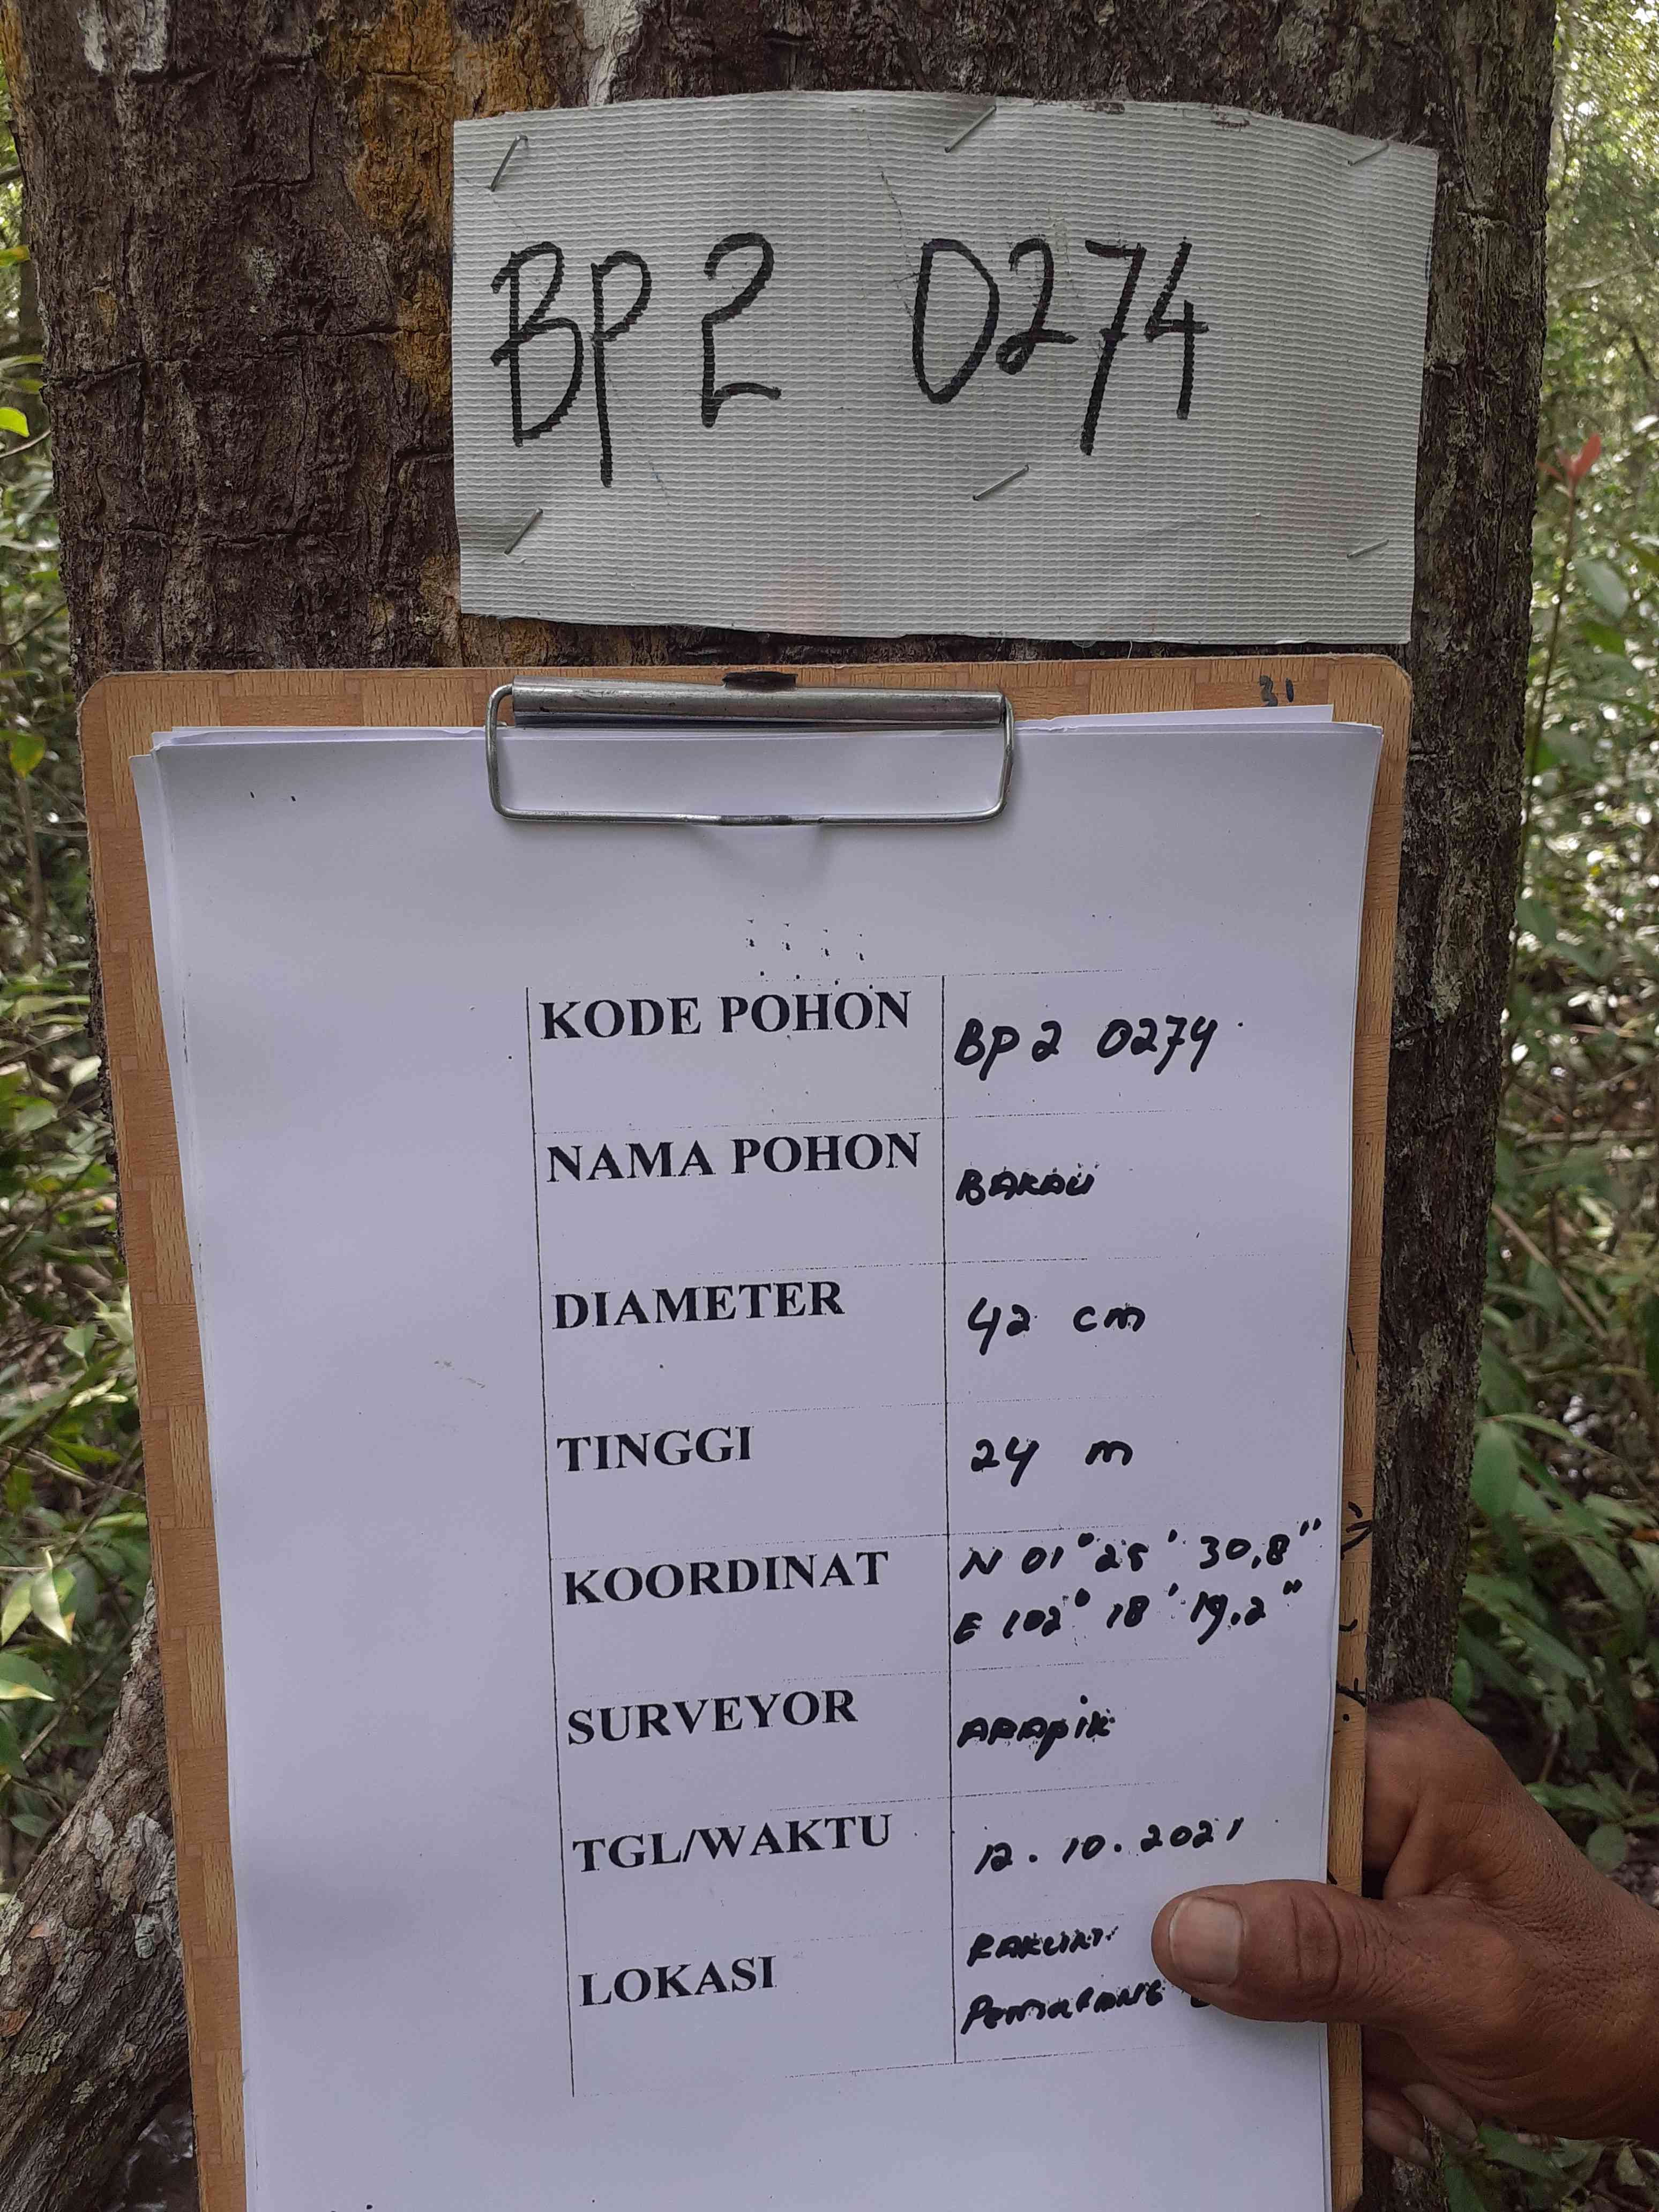 BP 2 0274
31
KODE POHON BP 2 0274
NAMA POHON BAKAU
DIAMETER 42 cm
TINGGI 24 m
KOORDINAT N 01° 25' 30,8"
E 102° 18' 19.2"
SURVEYOR ARAPIK
TGL/WAKTU 12.10.2021
LOKASI